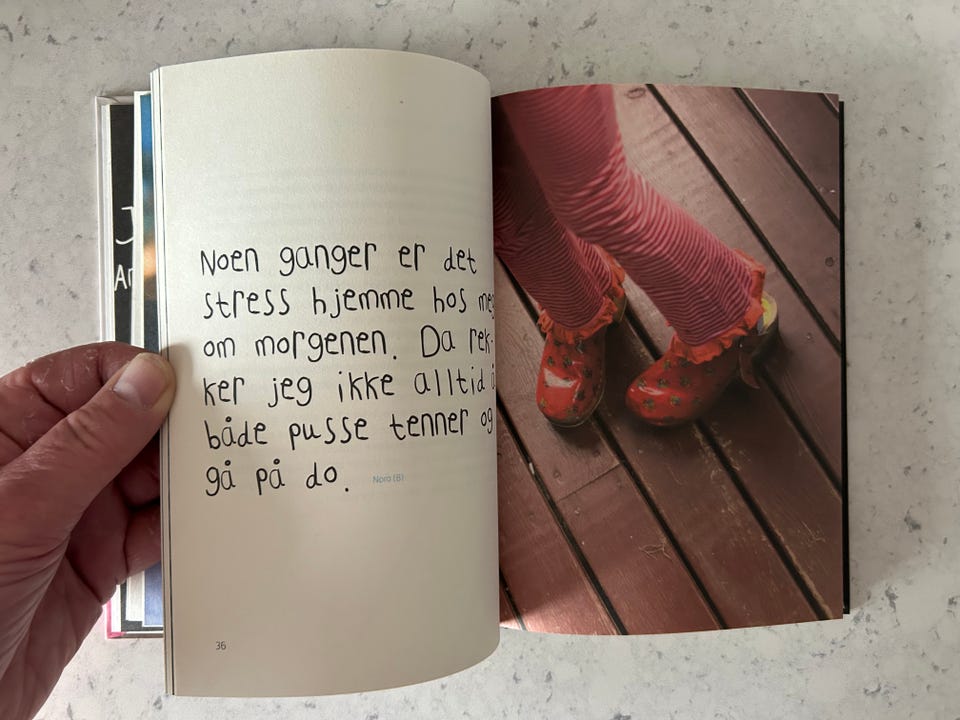 Noen ganger er det
stress hjemme hos me
om morgenen. Da rek-
ker jeg ikke alltid å
både pusse tenner og
gå på do.
Nora (8)
36